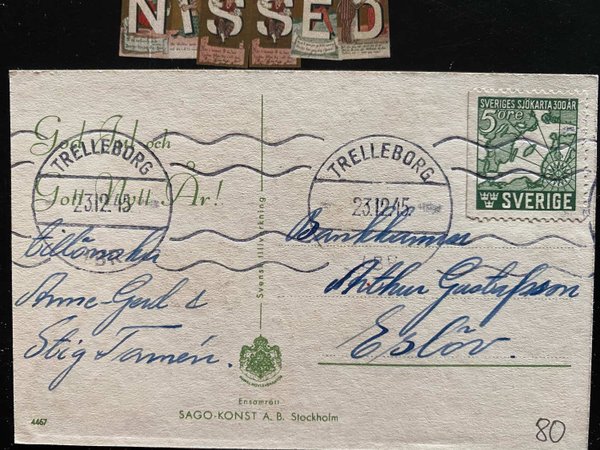 NISSED
God Jul och
Gott Nytt År!
TRELLEBORG
23.12.45
TRELLEBORG
23.12.45
SVERIGES SJÖKARTA 300 ÅR
5 öre
SVERIGE
tillönska
Anne-Gerd &
Stig Tamén.
Svensk tillverkning
Arthur Gustafsson
Eslöv.
Ensamrätt
SAGO-KONST A. B. Stockholm
4467
80